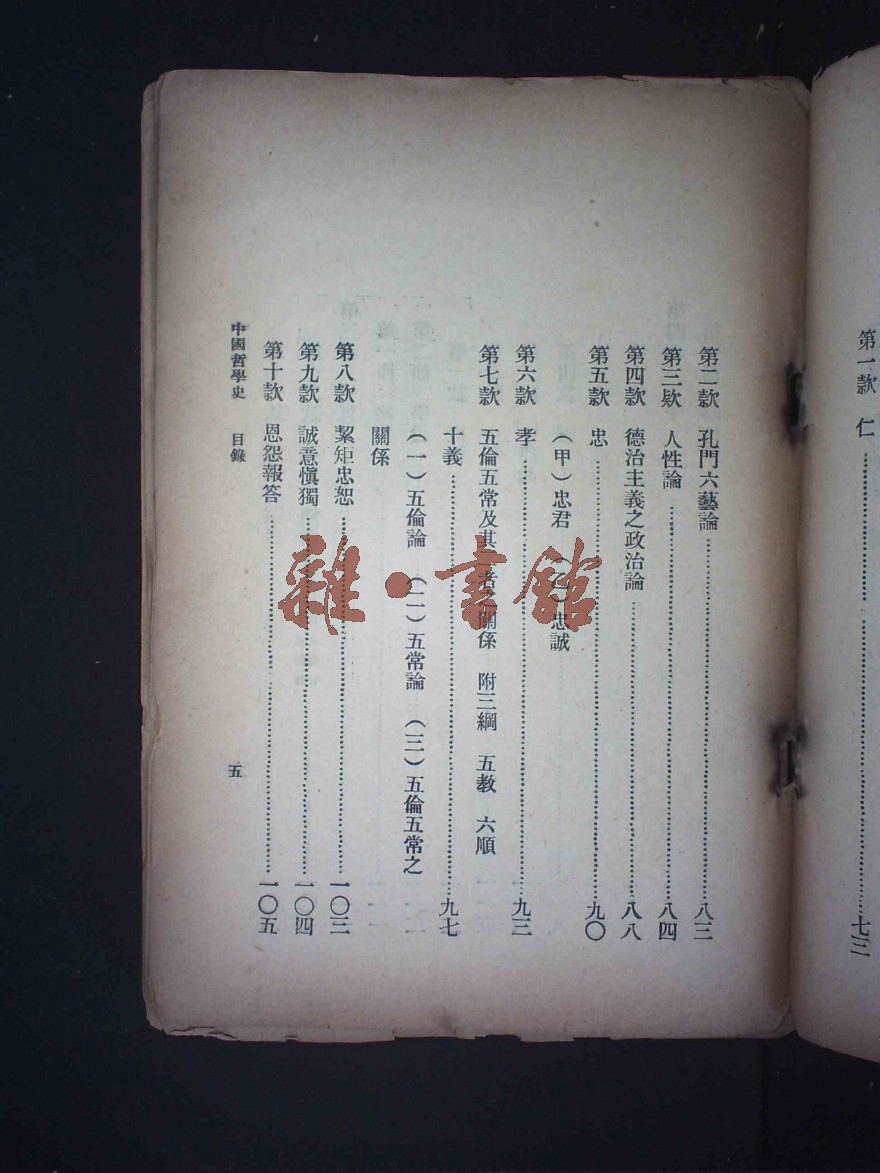 第一款　仁……七三
第二款　孔門六藝論……八三
第三欵　人性論……八四
第四款　德治主義之政治論……八八
第五款　忠……九〇
（甲）忠君　（乙）忠誠
第六款　孝……九三
第七款　五倫五常及其二者之關係　附三綱　五教　六順
十義……九七
（一）五倫論　（二）五常論　（三）五倫五常之
關係
第八款　絜矩忠恕……一〇三
第九款　誠意愼獨……一〇四
第十款　恩怨報答……一〇五
中國哲學史　目錄
五
雜·書館